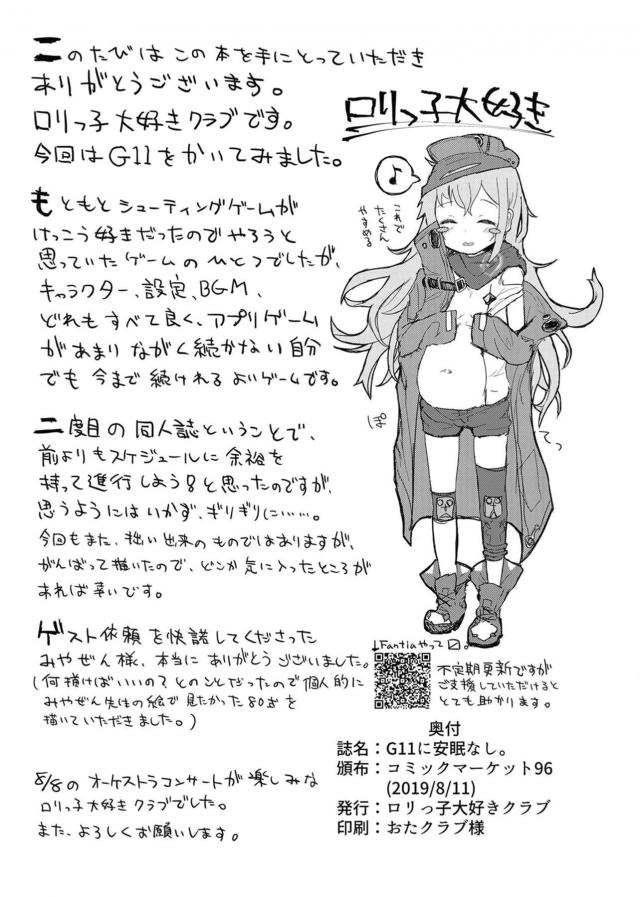 このたびは この本を手にとっていただき
ありがとうございます。
ロリっ子大好きクラブです。
今回はG11をかいてみました。
もともと シューティングゲームが
けっこう好きだったので やろうと
思っていたゲームのひとつでしたが、
キャラクター、設定、BGM、
どれもすべて良く、アプリゲーム
があまり ながく続かない自分
でも 今まで続けれる よいゲームです。
二度目の 同人誌ということで、
前よりもスケジュールに余裕を
持って進行しよう!と思ったのですが、
思うようにはいかず、ギリギリに……。
今回もまた、拙い出来のものではありますが、
がんばって描いたので、どこか気に入ったところが
あれば幸いです。
ゲスト依頼を快諾してくださった
みやぜん様、本当に ありがとうございました。
(何描けばいいの?とのことだったので個人的に
みやぜん先生の絵で見たかった80式を
描いていただきました。)
8/8の オーケストラコンサートが楽しみな
ロリっ子大好きクラブでした。
また、よろしくお願いします。
ロリっ子大好き
♪
これで
たくさん
やすめる
ぽ
てっ
↓Fantiaやって〼。
不定期更新ですが
ご支援していただけると
とても助かります。
奥付
誌名:G11に安眠なし。
頒布:コミックマーケット96
(2019/8/11)
発行:ロリっ子大好きクラブ
印刷:おたクラブ様